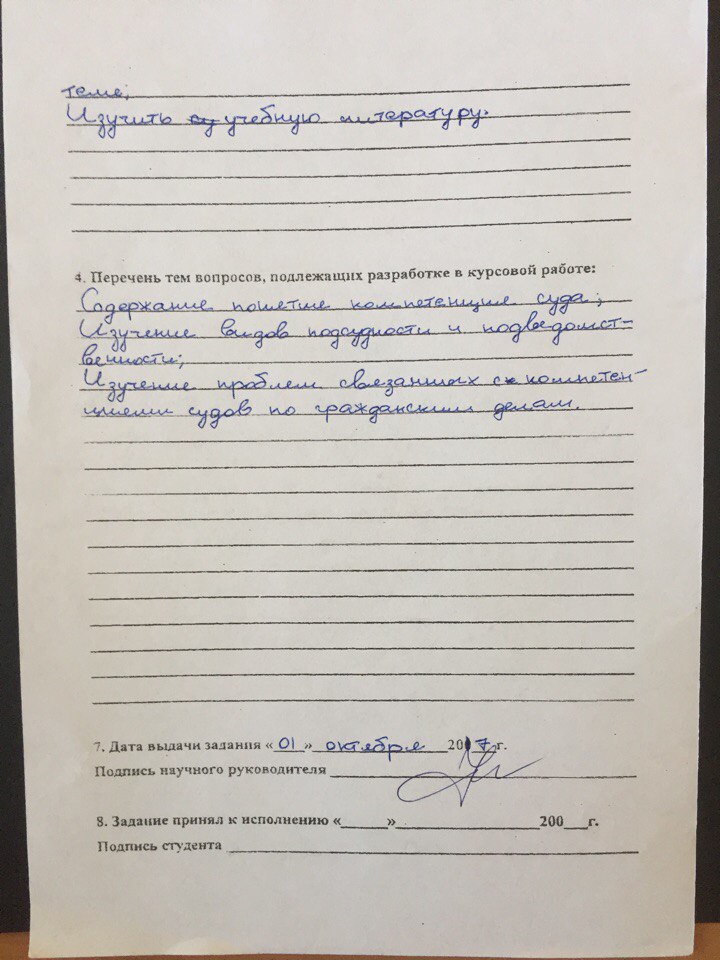 теме;
Изучить учебную литературу.
4. Перечень тем вопросов, подлежащих разработке в курсовой работе:
Содержание понятие компетенции суда;
Изучение видов подсудности и подведомст-
венности;
Изучение проблем связанных с компетен-
циями судов по гражданским делам.
7. Дата выдачи задания «01» октября 2017 г.
Подпись научного руководителя
8. Задание принял к исполнению «____»____________200___г.
Подпись студента